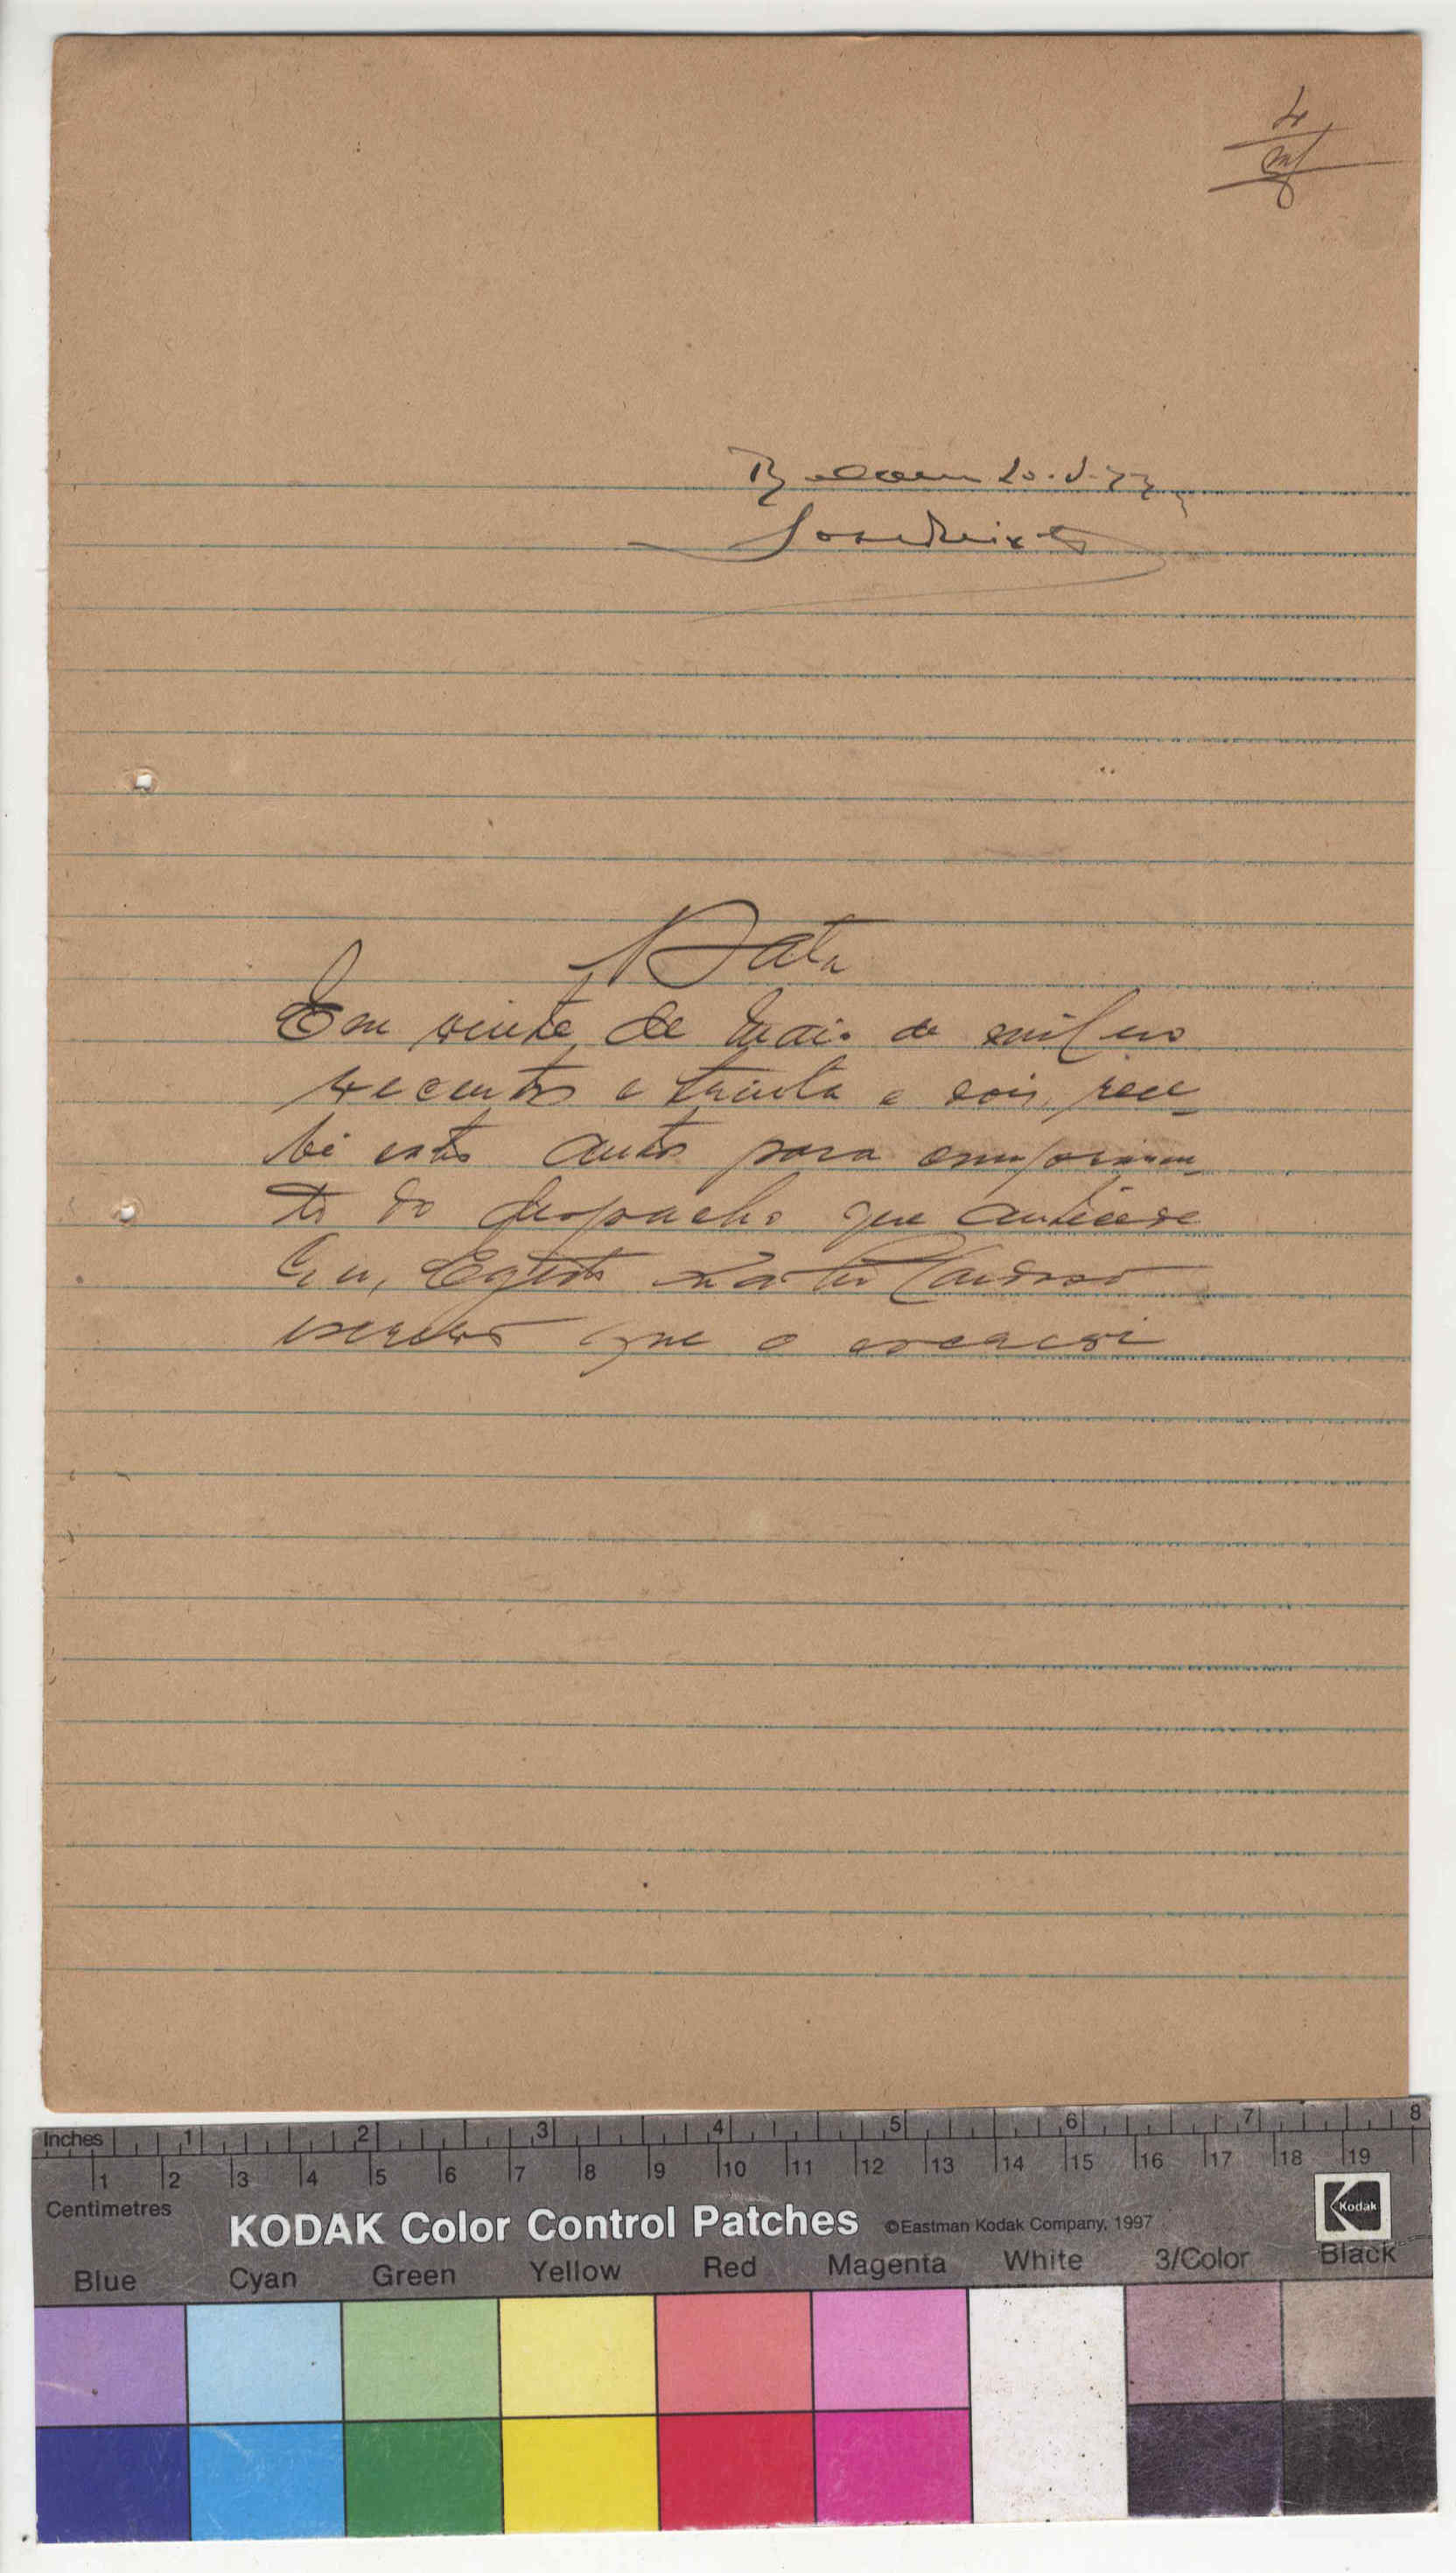 4
Belem 20-5-32
José Peixoto
Data
Em vinte de Maio de mil no
vecentos e trinta e dois, rece-
bi estes autos para cumprimen-
to do despacho que antecede
Eu, Egidio Cardoso
escrivão que o escrevi
Inches 1 2 3 4 5 6 7 8
1 2 3 4 5 6 7 8 9 10 11 12 13 14 15 16 17 18 19
Centimetres
KODAK Color Control Patches ©Eastman Kodak Company, 1997 Kodak
Blue Cyan Green Yellow Red Magenta White 3/Color Black